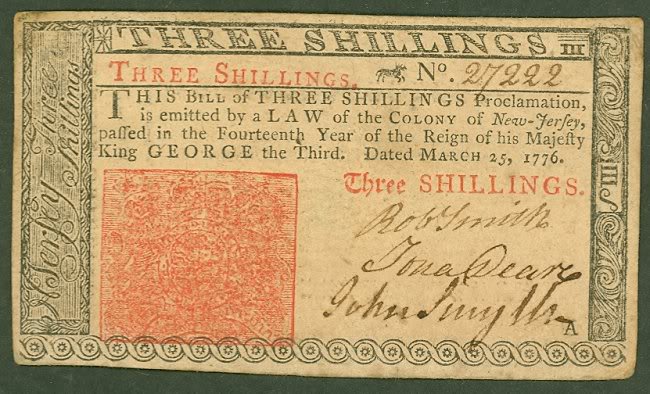 THREE SHILLINGS III
THREE SHILLINGS. No. 27222
THIS BILL of THREE SHILLINGS Proclamation,
is emitted by a LAW of the COLONY of New-Jerſey,
paſſed in the Fourteenth Year of the Reign of his Majeſty
King GEORGE the Third. Dated MARCH 25, 1776.
Three SHILLINGS.
Rob Smith
Jona Deare
John Smyth
A
N Jerſey Three Shillings
III S